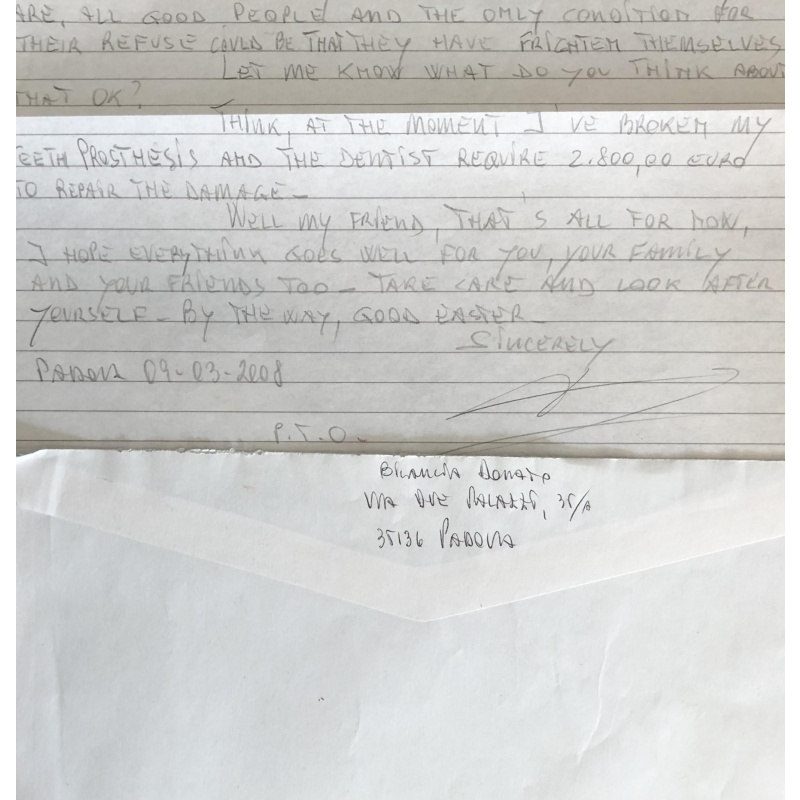 ARE, ALL GOOD PEOPLE AND THE ONLY CONDITION FOR
THEIR REFUSE COULD BE THAT THEY HAVE FRIGHTEN THEMSELVES
LET ME KNOW WHAT DO YOU THINK ABOUT
THAT OK?
THINK, AT THE MOMENT I'VE BROKEN MY
EETH PROSTHESIS AND THE DENTIST REQUIRE 2.800,00 EURO
TO REPAIR THE DAMAGE-
WELL MY FRIEND, THAT'S ALL FOR NOW,
I HOPE EVERYTHINK GOES WELL FOR YOU, YOUR FAMILY
AND YOUR FRIENDS TOO- TAKE CARE AND LOOK AFTER
YOURSELF- BY THE WAY, GOOD EASTER
SINCERELY
PADOVA 09-03-2008
P.T.O.-
BILANCIA DONATO
VIA DUE PALAZZI, 35/A
35136 PADOVA